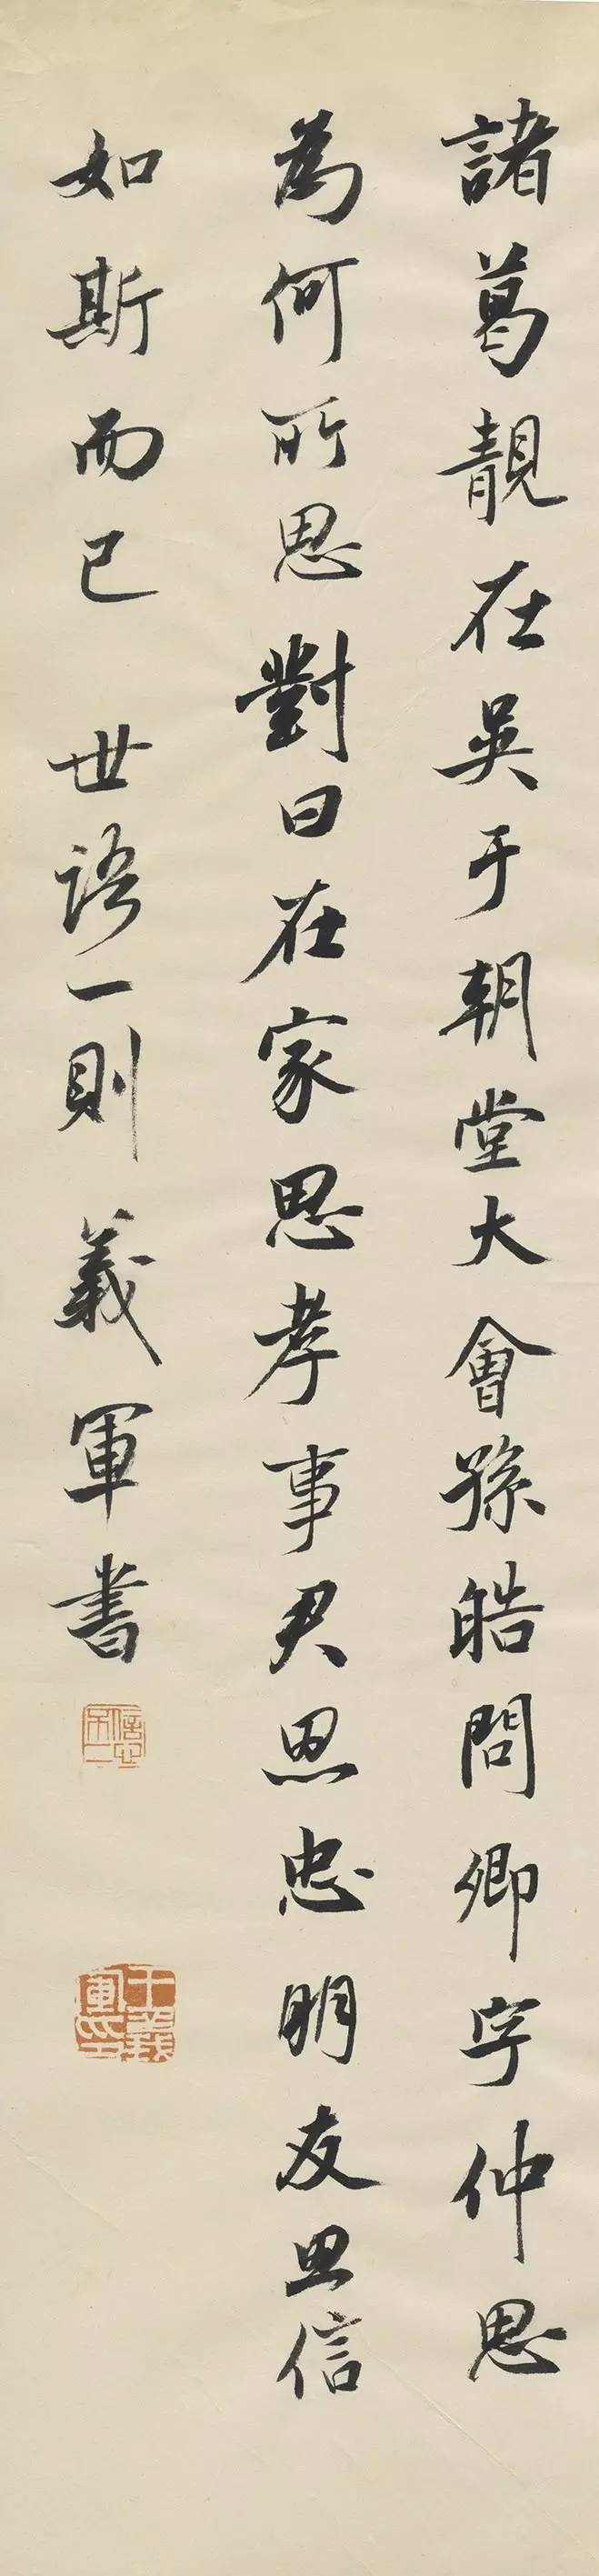 諸葛靚在吳于朝堂大會孫皓問卿字仲思
為何所思對曰在家思孝事君思忠朋友思信
如斯而已 世語一則 義軍書
信心不二
王義軍印